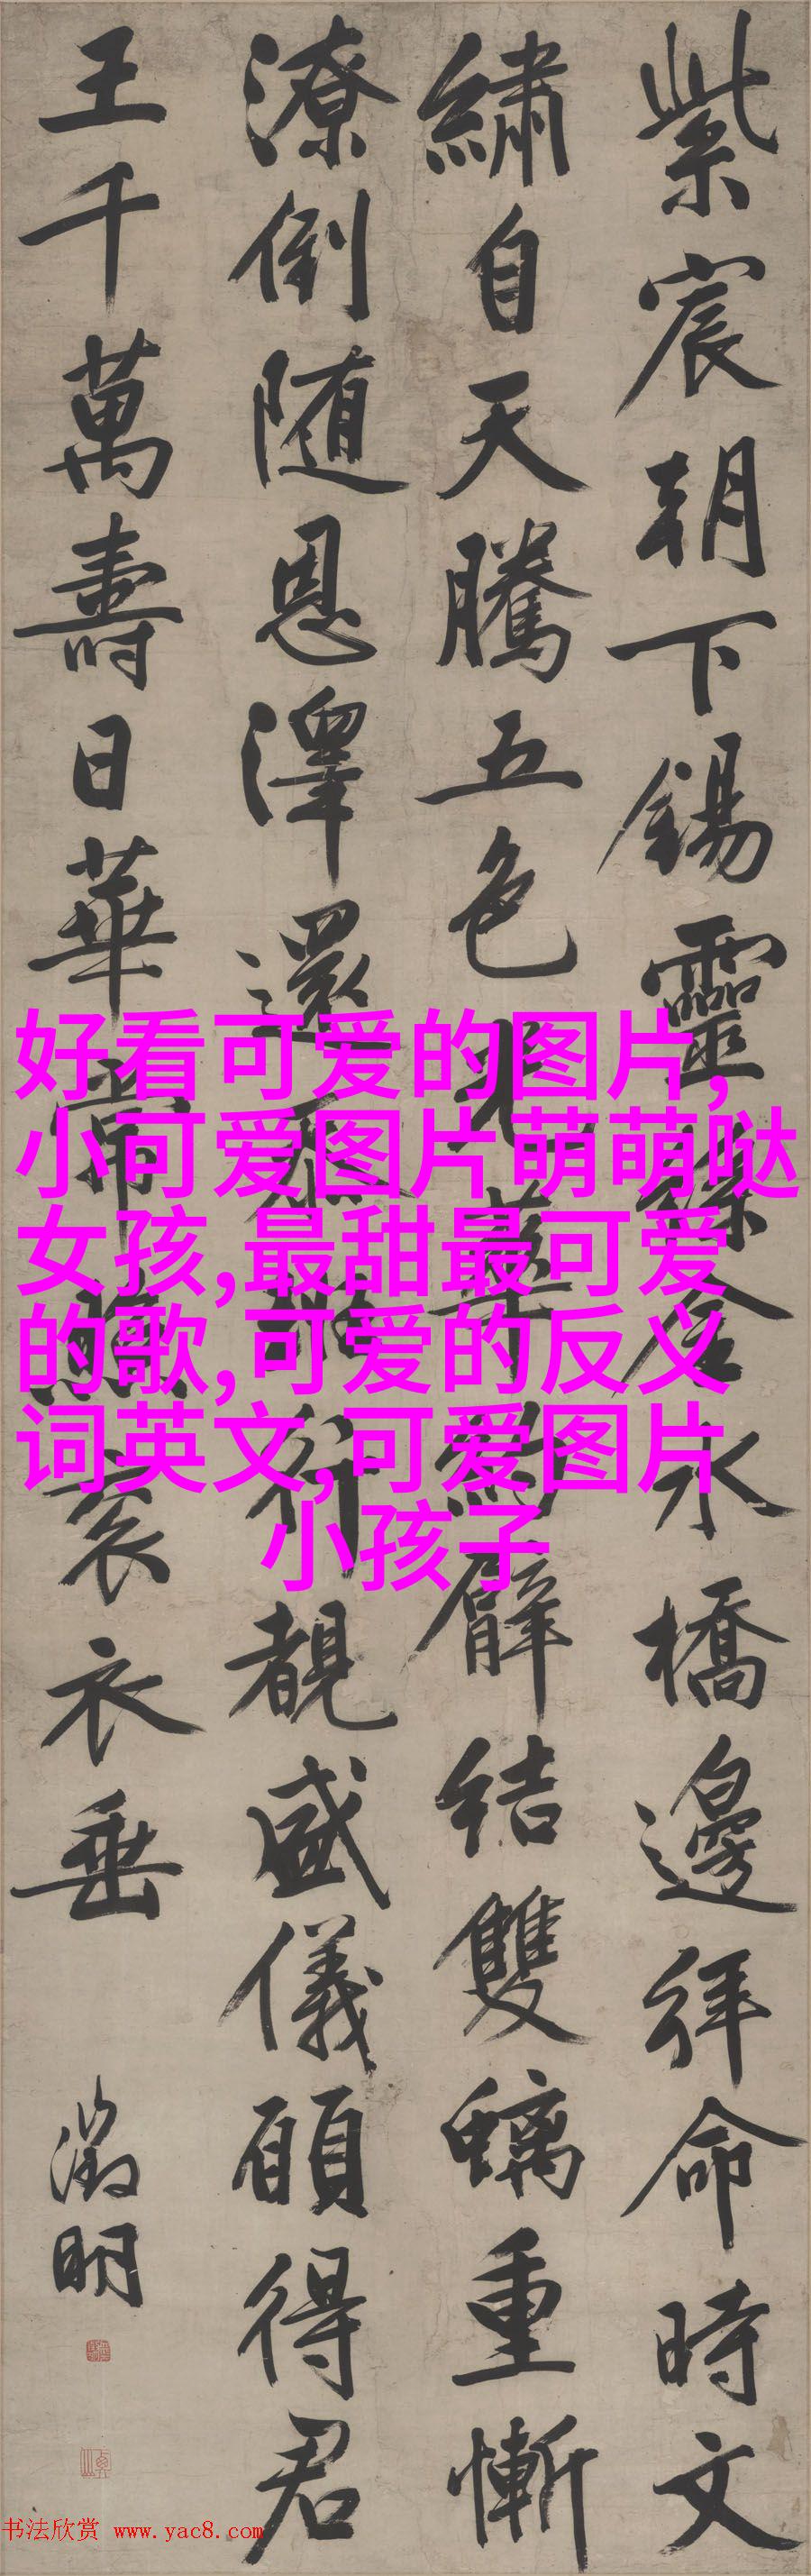 紫宸朝下錫靈絲金水橋邊拜命時文
繡自天騰五色光華約臂結雙螭重慚
潦倒随恩澤還行覩盛儀願得君
王千萬壽日華常照袞衣垂
徵明
好看可爱的图片,
小可爱图片萌萌哒
女孩,最甜最可爱
的歌,可爱的反义
词英文,可爱图片
小孩子
书法欣赏 www.yac8.com